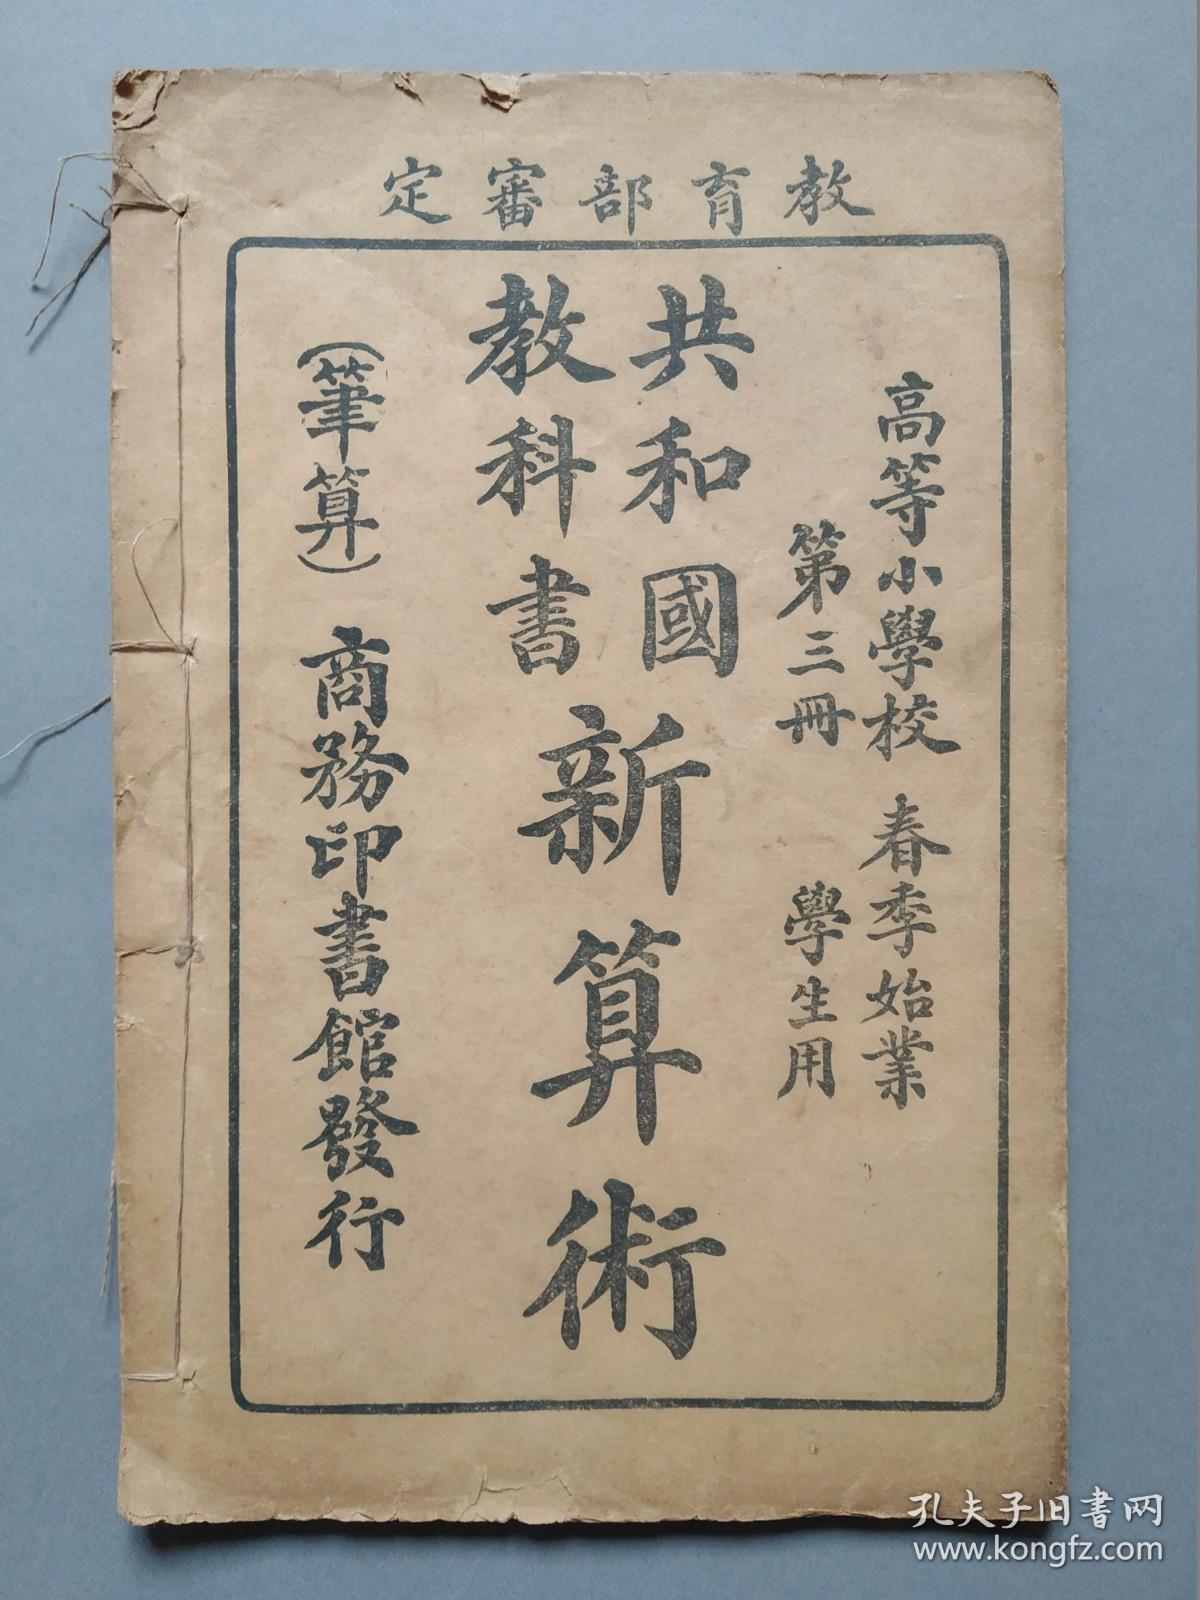 教育部審定
高等小學校 春季始業
第三冊 學生用
共和國
教科書
新算術
(筆算)
商務印書館發行
孔夫子旧书网
www.kongfz.com